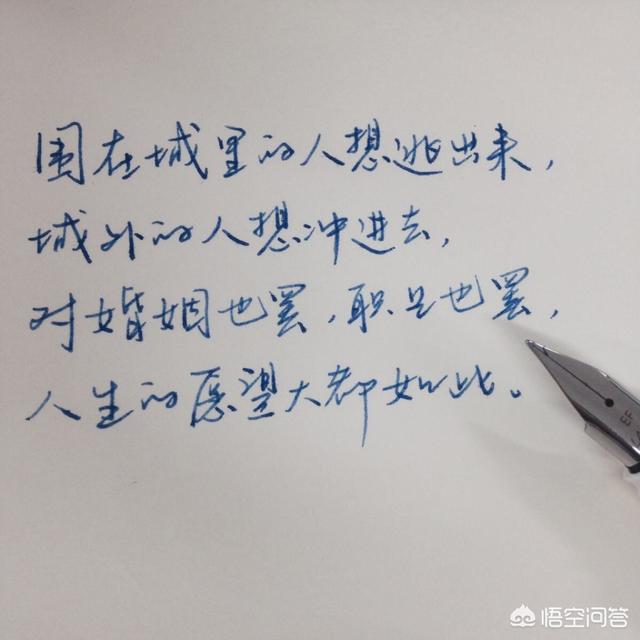 围在城里的人想逃出来，
城外的人想冲进去，
对婚姻也罢，职业也罢，
人生的愿望大都如此。
EF
悟空问答